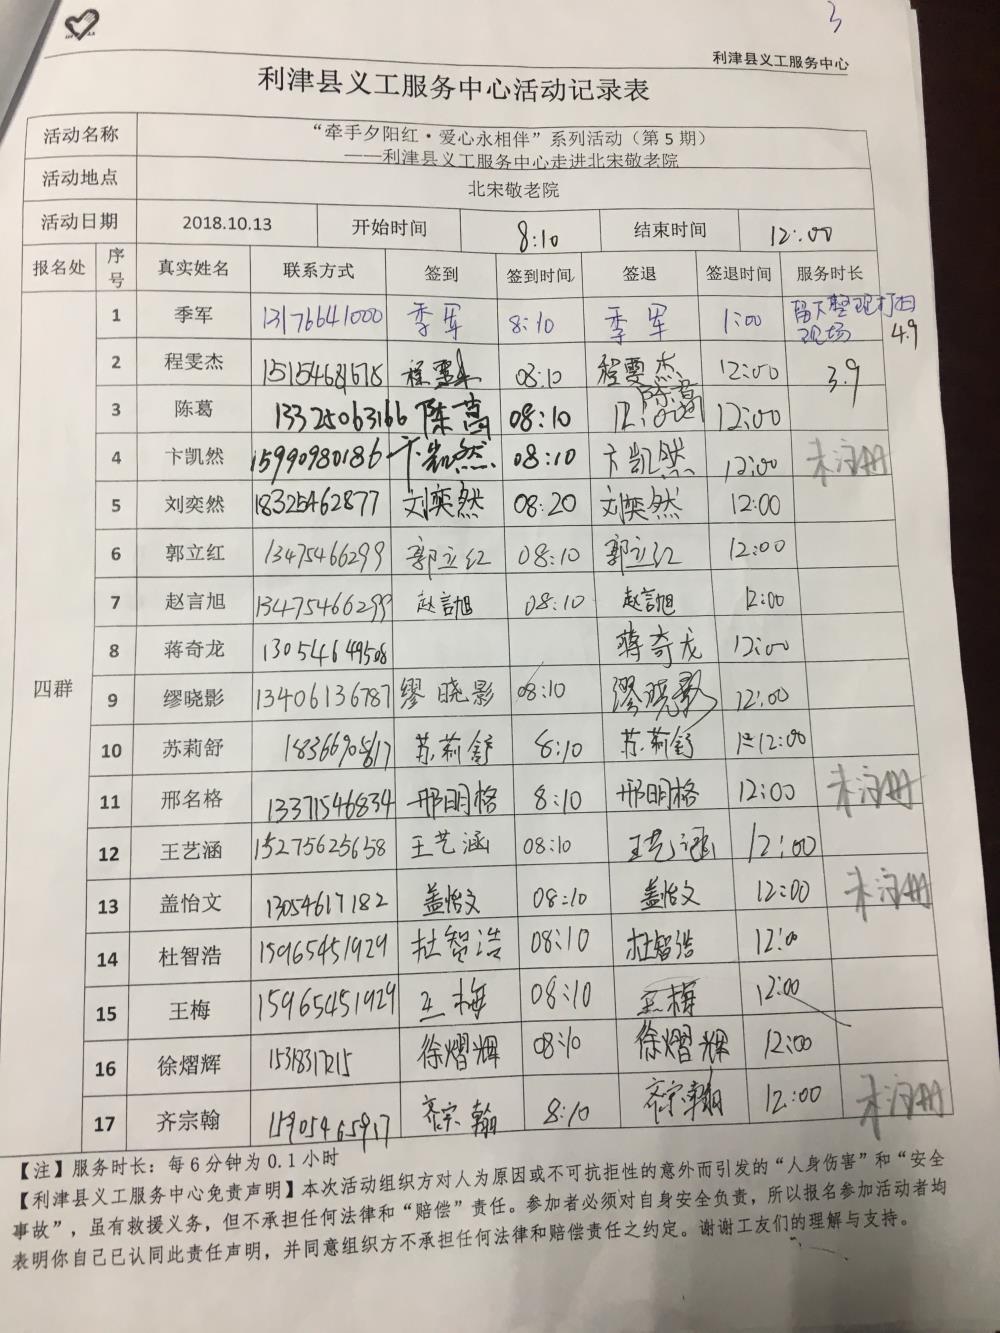 3
利津县义工服务中心
利津县义工服务中心活动记录表
活动名称 “牵手夕阳红·爱心永相伴”系列活动（第 5 期）
——利津县义工服务中心走进北宋敬老院
活动地点 北宋敬老院
活动日期 2018.10.13 开始时间 8:10 结束时间 12:00
报名处 序号 真实姓名 联系方式 签到 签到时间 签退 签退时间 服务时长
四群
1 季军 13176641000 季军 8:10 季军 1:00 留下整理打扫现场 4.9
2 程雯杰 程雯杰 08:10 程雯杰 12:00 3.9
3 陈葛 13325063166 陈葛 08:10 12:00 陈葛 12:00
4 卞凯然 15990980186 卞凯然 08:10 卞凯然 12:00 未注册
5 刘奕然 18325462877 刘奕然 08:20 刘奕然 12:00
6 郭立红 13475466299 郭立红 08:10 郭立红 12:00
7 赵言旭 13475466299 赵言旭 08:10 赵言旭 12:00
8 蒋奇龙 13054649508 蒋奇龙 12:00
9 缪晓影 13406136787 缪晓影 08:10 缪晓影 12:00
10 苏莉舒 18366908617 苏莉舒 8:10 苏莉舒 12:00
11 邢名格 13371546834 邢明格 8:10 邢明格 12:00 未注册
12 王艺涵 15275625658 王艺涵 08:10 王艺涵 12:00
13 盖怡文 13054617182 盖怡文 08:10 盖怡文 12:00 未注册
14 杜智浩 15965451929 杜智浩 08:10 杜智浩 12:00
15 王梅 15965451929 王梅 08:10 王梅 12:00
16 徐熠辉 徐熠辉 08:10 徐熠辉 12:00
17 齐宗翰 15905465917 齐宗翰 8:10 齐宗翰 12:00 未注册
【注】服务时长：每 6 分钟为 0.1 小时
【利津县义工服务中心免责声明】本次活动组织方对人为原因或不可抗拒性的意外而引发的“人身伤害”和“安全
事故”，虽有救援义务，但不承担任何法律和“赔偿”责任。参加者必须对自身安全负责，所以报名参加活动者均
表明你自己已认同此责任声明，并同意组织方不承担任何法律和赔偿责任之约定。谢谢工友们的理解与支持。